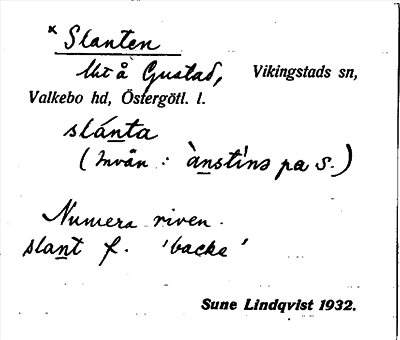 × Slanten
Ukt å Gustad, Vikingstads sn,
Valkebo hd, Östergötl. l.
slánta
(Invån : ànstìns pa S.)
Numera riven.
slant f. 'backe'
Sune Lindqvist 1932.